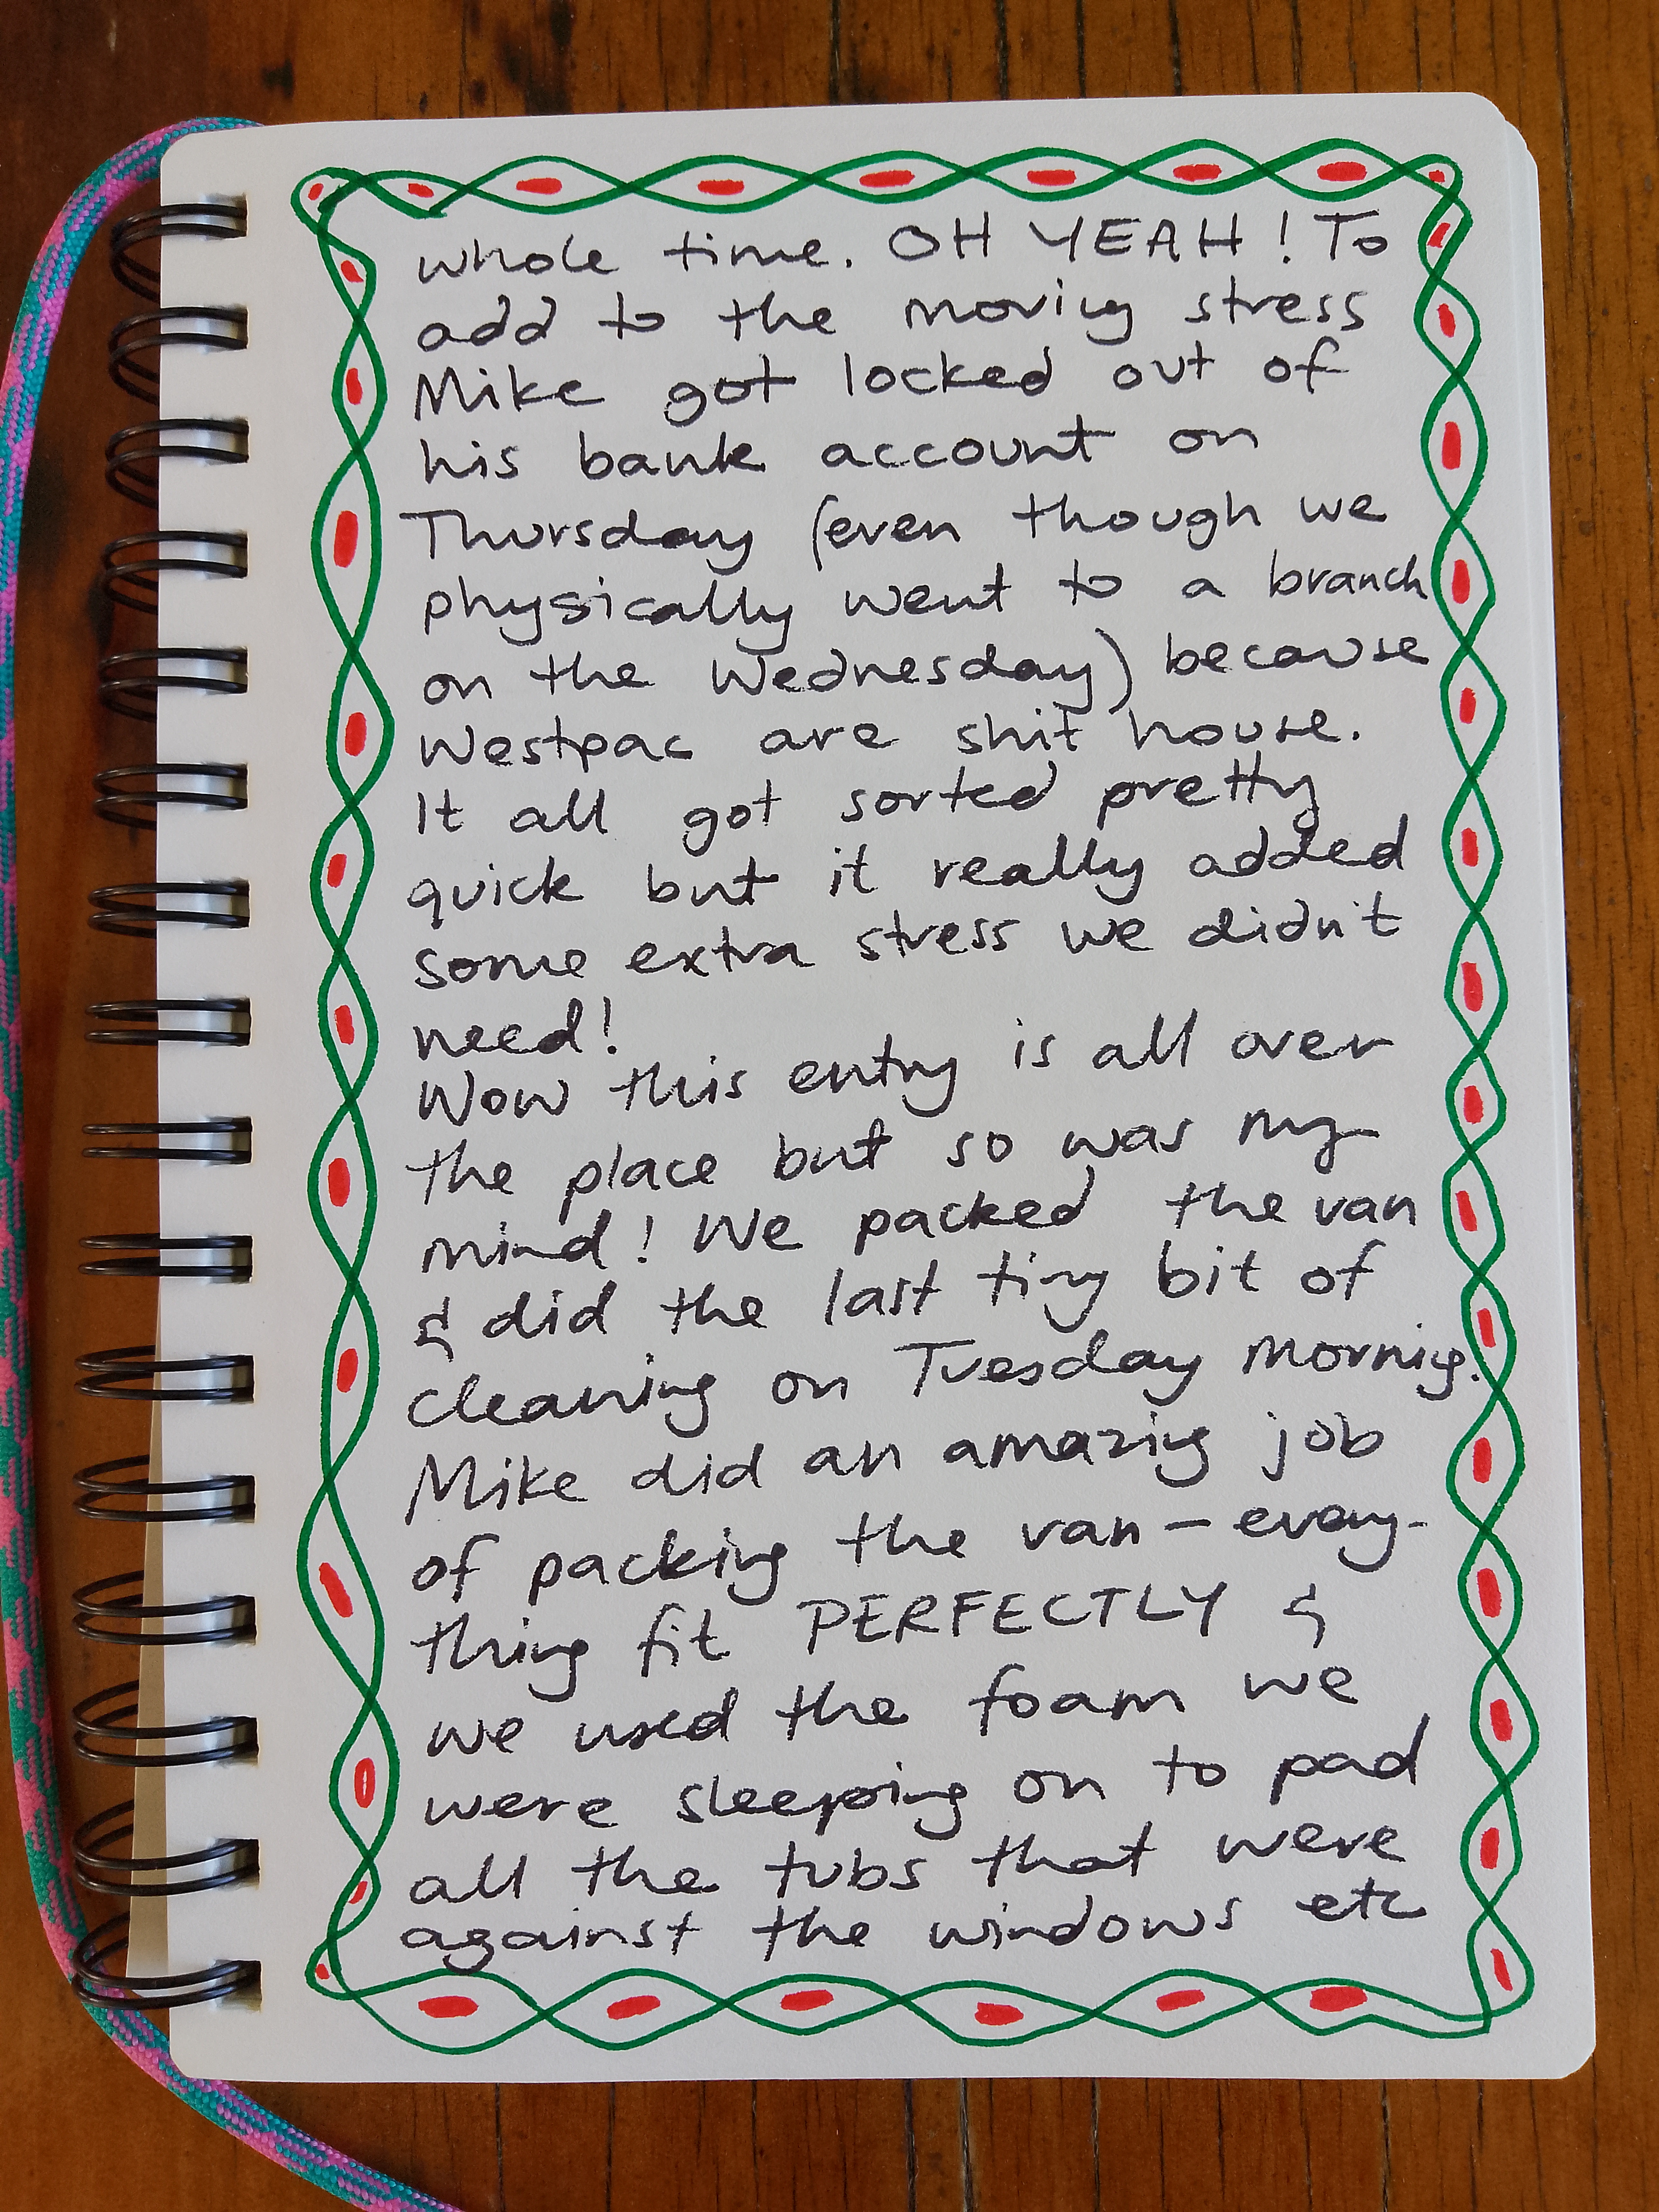 whole time. OH YEAH! To
add to the moving stress
Mike got locked out of
his bank account on
Thursday (even though we
physically went to a branch
on the Wednesday) because
Westpac are shit house.
It all got sorted pretty
quick but it really added
some extra stress we didn't
need!
Wow this entry is all over
the place but so was my
mind! We packed the van
& did the last tiny bit of
cleaning on Tuesday morning.
Mike did an amazing job
of packing the van - every-
thing fit PERFECTLY &
we used the foam we
were sleeping on to pad
all the tubs that were
against the windows etc